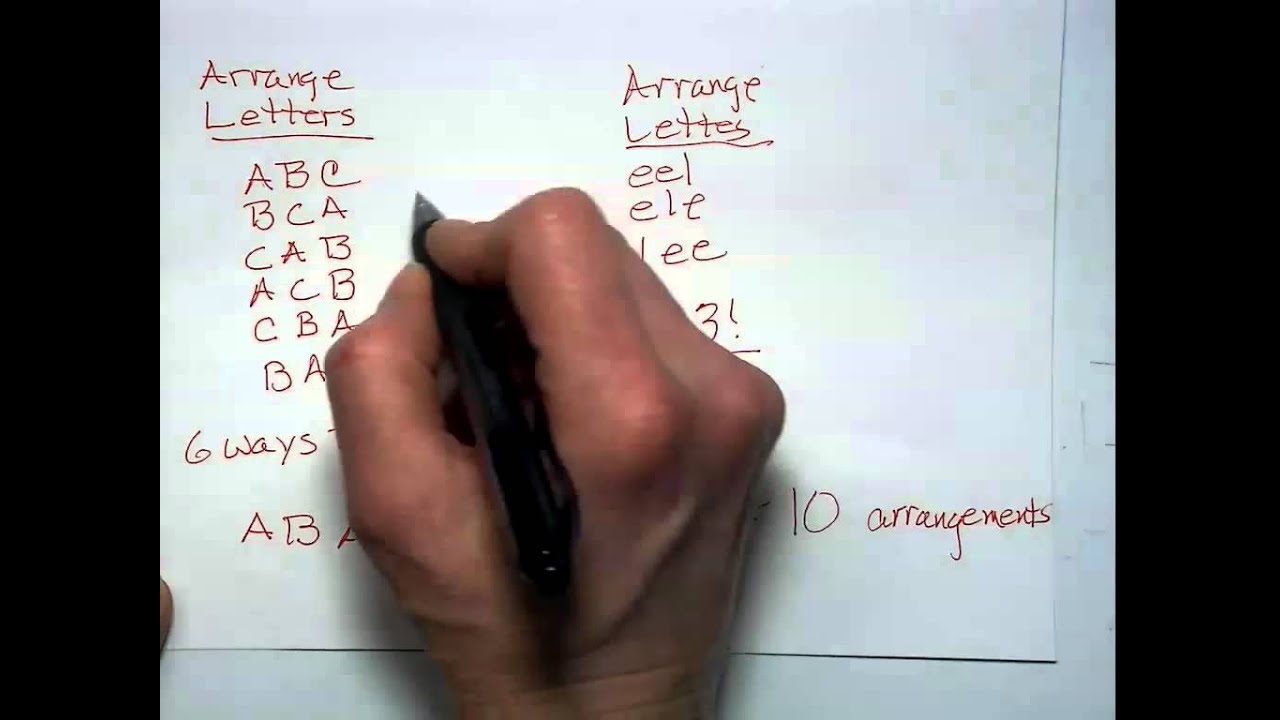 Arrange
Letters
ABC
BCA
CAB
ACB
CBA
BA
6 ways
ABA
Arrange
Lettes
eel
ele
lee
3!
= 10 arrangements